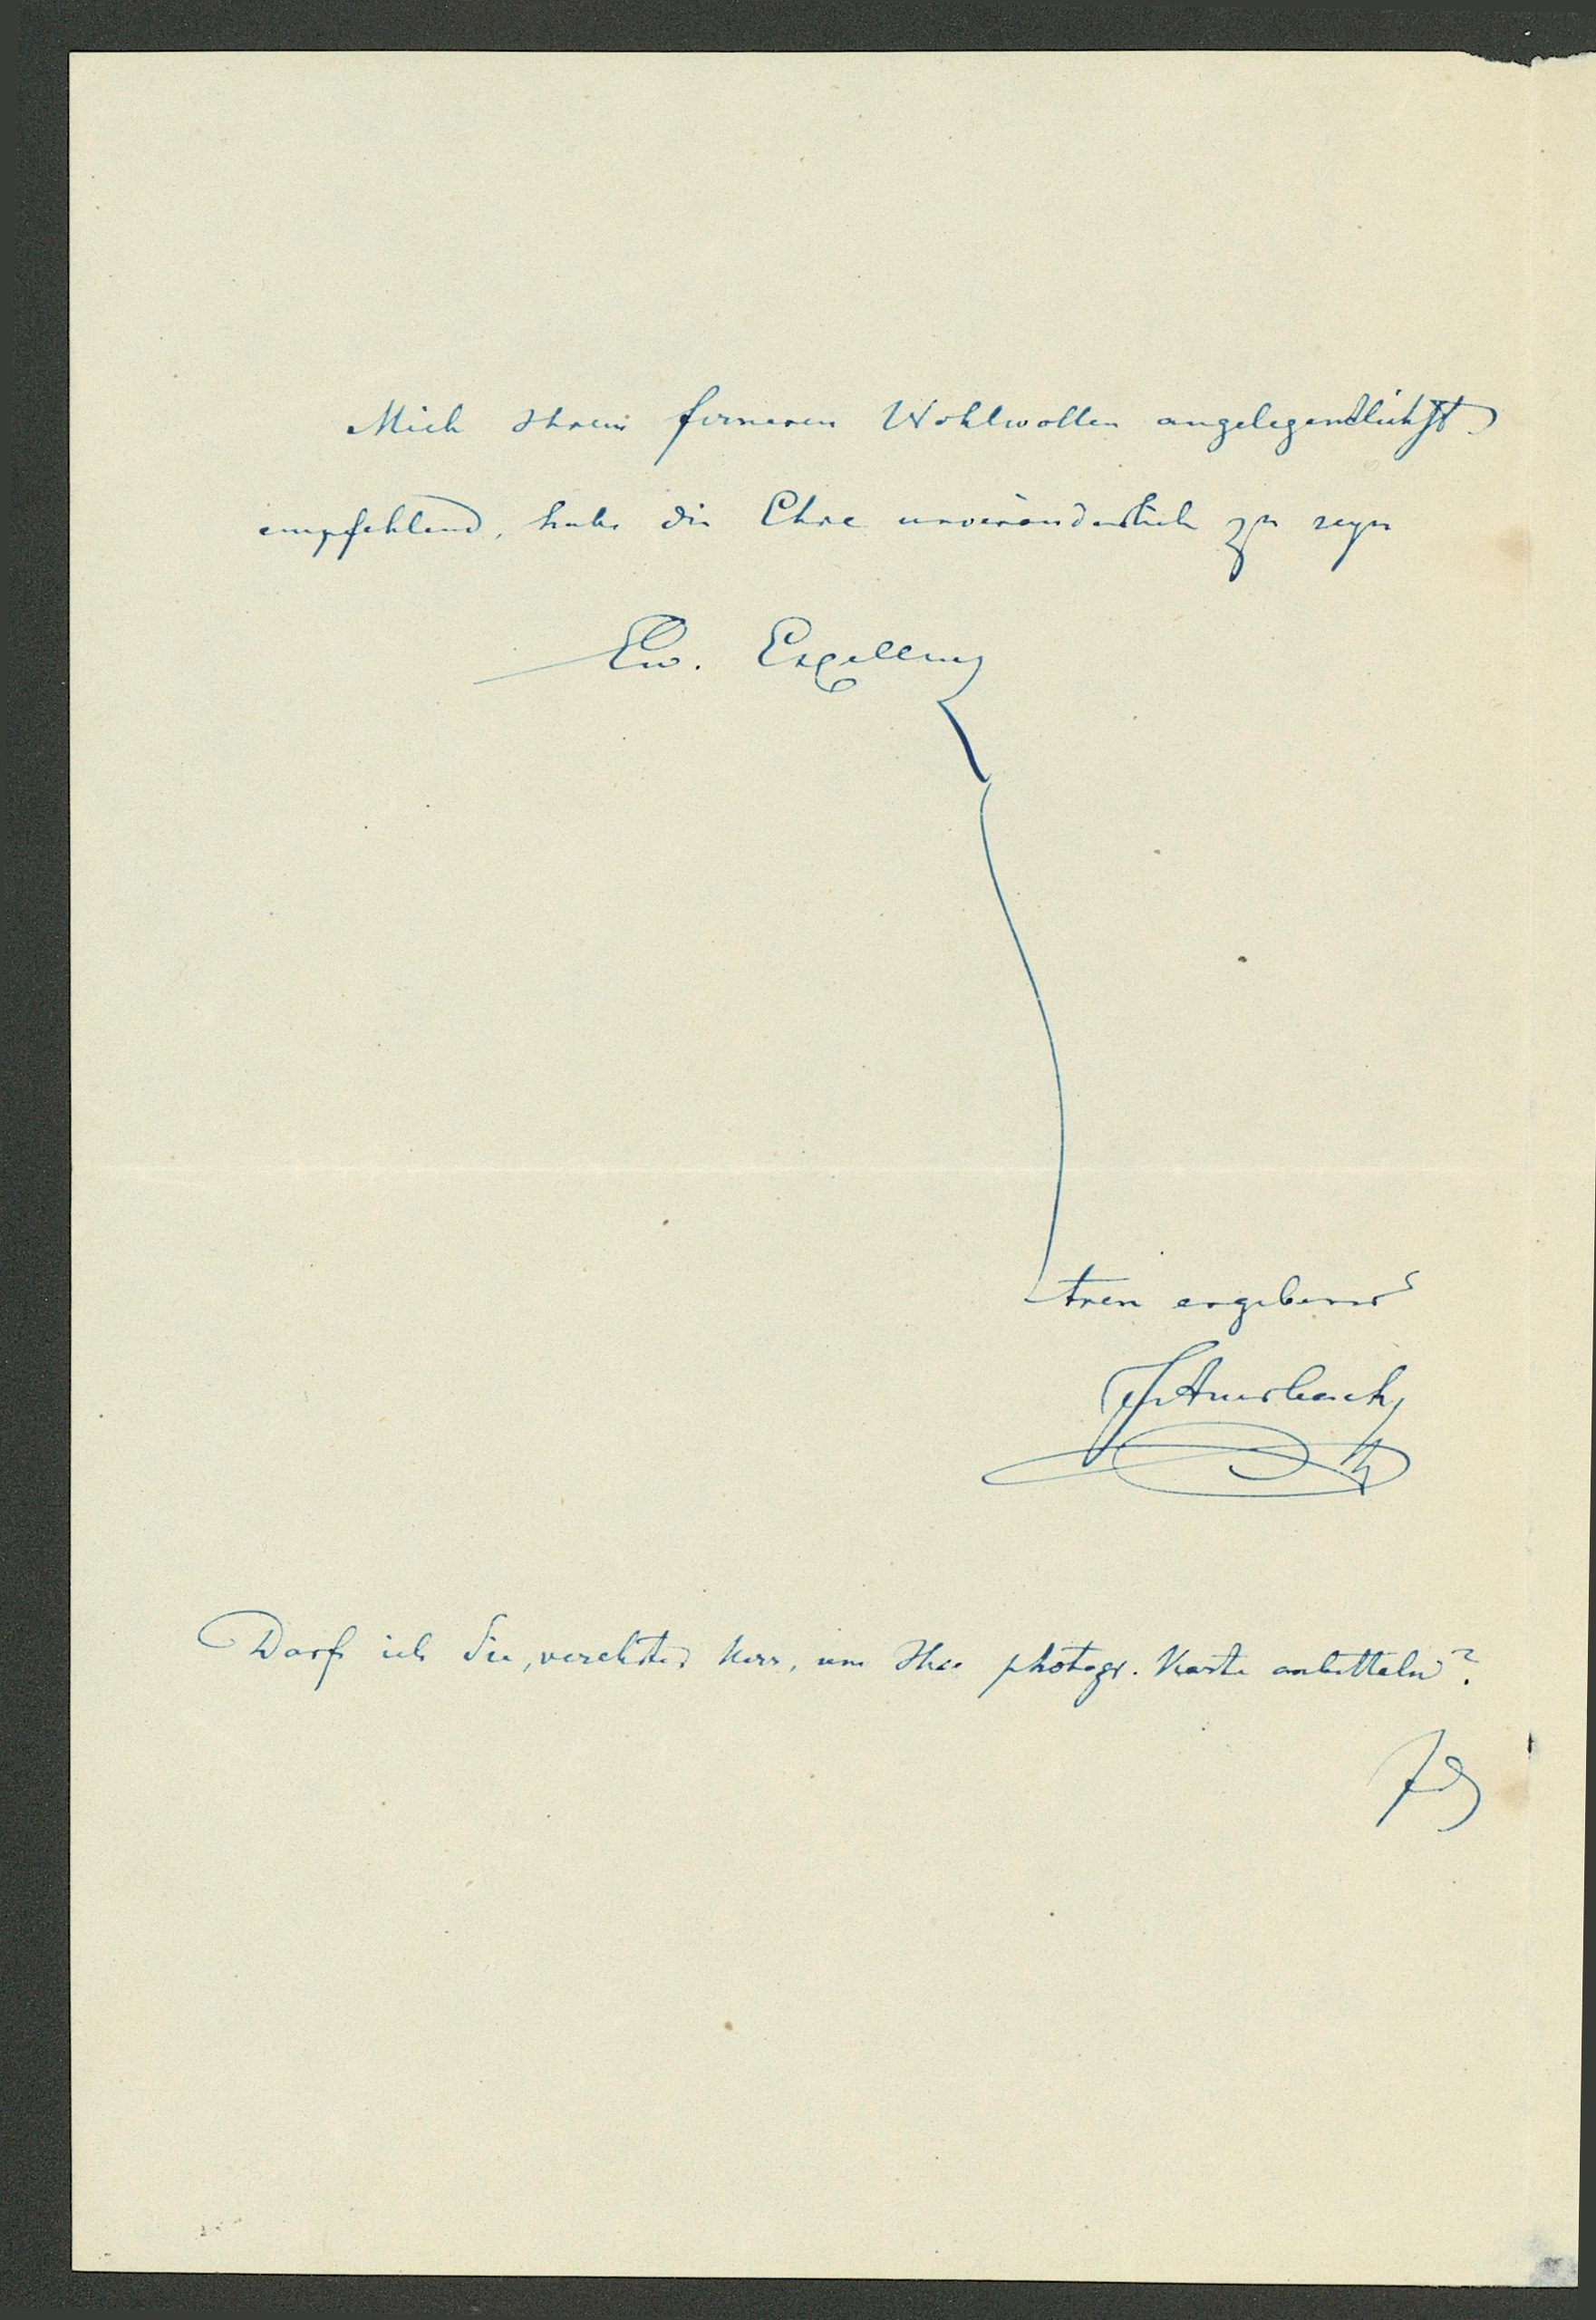 Mich Ihrem ferneren Wohlwollen angelegentlichst
empfehlend, habe die Ehre unveränderlich zu seyn
Ew. Exzellenz
treu ergebener
Auerbach
Darf ich Sie, verehrter Herr, um Ihre photogr. Karte anbetteln?